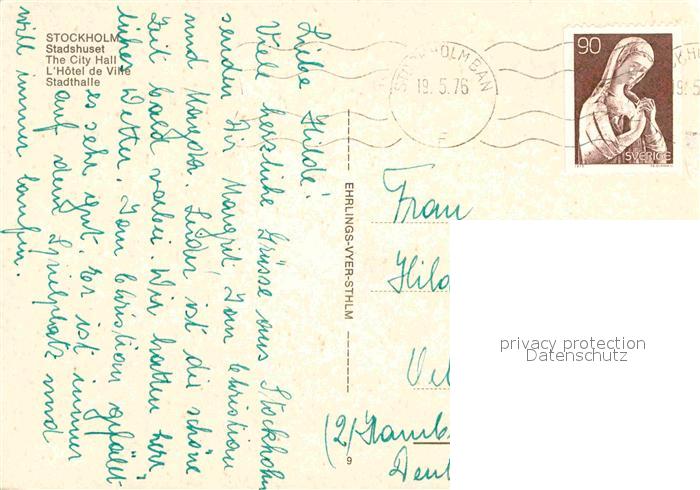 STOCKHOLM
Stadshuset
The City Hall
L'Hôtel de Ville
Stadthalle
Liebe Hilde!
Viele herzliche Grüsse aus Stockholm
senden Dir Margrit, Jan Christian
und Margota. Leider ist die schöne
Zeit bald vorbei. Wir hatten herr-
liches Wetter. Jan Christian gefällt
es sehr gut. Er ist immer
auf dem Spielplatz und
will immer laufen.
EHRLINGS-VYER-STHLM
9
STOCKHOLM BAN
19.5.76
F
90
SVERIGE
Frau
Hild
(2) Hamb
Deut
privacy protection
Datenschutz